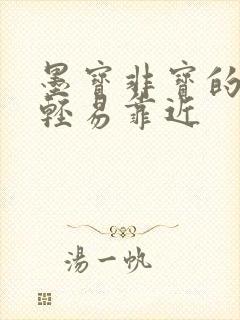 墨寶非寶的
輕易靠近
湯一帆